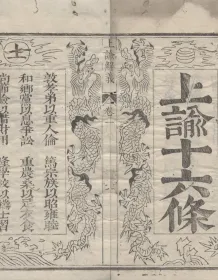 上諭十六條
敦孝弟以重人倫 篤宗族以昭雍睦
和鄉黨以息爭訟 重農桑以足衣食
尚節儉以惜財用 隆學校以端士習